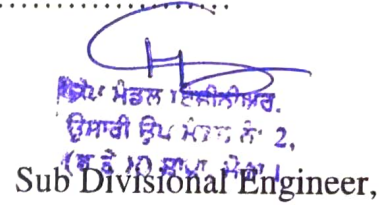 ਉਪ ਮੰਡਲ ਇੰਜੀਨੀਅਰ.
ਉਸਾਰੀ ਉਪ ਮੰਡਲ ਨੰ 2,
Sub Divisional Engineer,